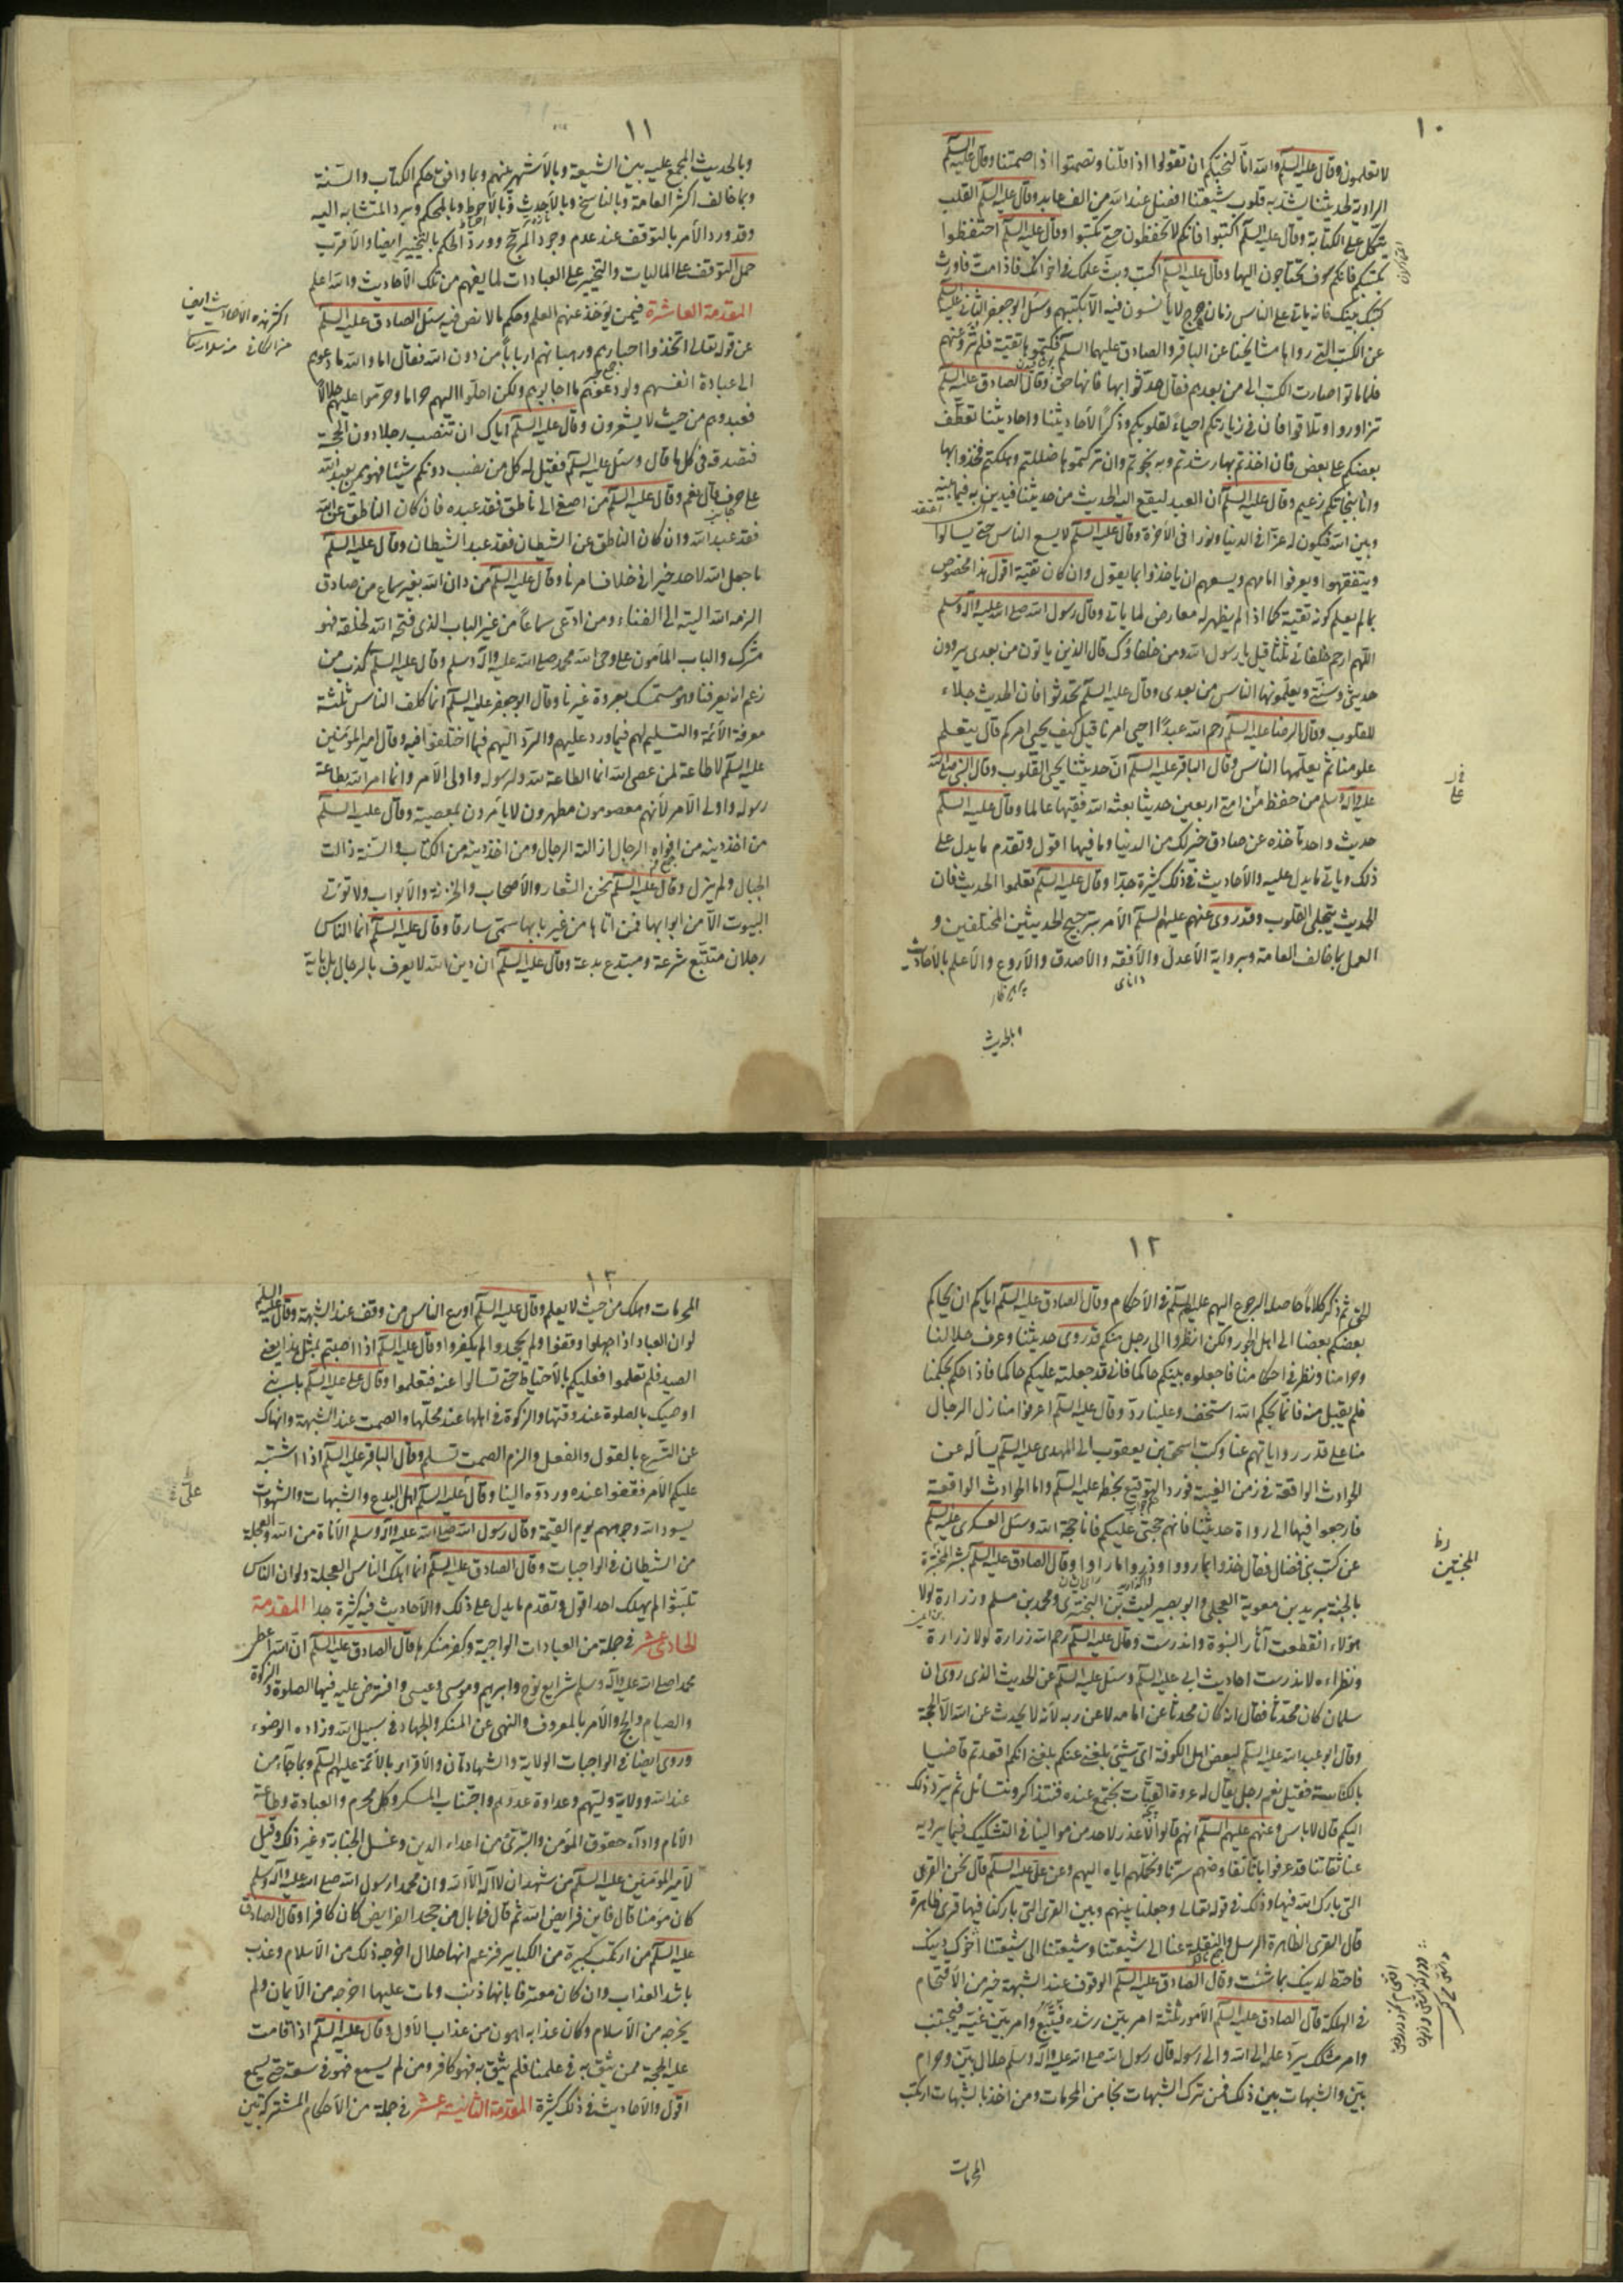 ١٠
لا تعلمون وقال عليه السلم والله انا لنحبكم ان تقولوا اذا قلنا وتصمتوا اذا صمتنا وقال عليه السلم
الراوية لحديثنا يشد به قلوب شيعتنا افضل عند الله من الف عابد وقال عليه السلم القلب
يتكل على الكتابة وقال عليه السلم اكتبوا فانكم لا تحفظون حتى تكتبوا وقال عليه السلم احتفظوا
بكتبكم فانكم سوف تحتاجون اليها وقال عليه السلم اكتب وبث علمك في اخوانك فاذا مت فاورث
كتبك بنيك فانه ياتي على الناس زمان هرج لا يأنسون فيه الا بكتبهم وسئل ابو جعفر الثاني عليه السلم
عن الكتب التي رواها مشايخنا عن الباقر والصادق عليهما السلم فكتموها تقية فلم ترو عنهم
فلما ماتوا صارت الكتب الى من بعدهم فقال حدثوا بها فانها حق وقال الصادق عليه السلم
تزاوروا وتلاقوا فان في زيارتكم احياء لقلوبكم وذكرا لأحاديثنا واحاديثنا تعطف
بعضكم على بعض فان اخذتم بها رشدتم وبه نجوتم وان تركتموها ضللتم وهلكتم فخذوا بها
وانا بنجاتكم زعيم وقال عليه السلم ان العبد ليقع اليه الحديث من حديثنا فيدين به فيما بينه
وبين الله فيكون له عزا في الدنيا ونورا في الآخرة وقال عليه السلم لا يسع الناس حتى يسالوا
ويتفقهوا ويعرفوا امامهم ويسعهم ان ياخذوا بما يقول وان كان تقية اقول هذا مخصوص
بما لم يعلم كونه تقية كما اذا لم يظهر له معارض لما ياتي وقال رسول الله صلى الله عليه وآله وسلم
اللهم ارحم خلفائي ثلثا قيل يا رسول الله ومن خلفاؤك قال الذين ياتون من بعدي يروون
حديثي وسنتي ويعلمونها الناس من بعدي وقال عليه السلم تحدثوا فان الحديث جلاء
للقلوب وقال الرضا عليه السلم رحم الله عبدا احيى امرنا قيل كيف يحيى امركم قال يتعلم
علومنا ثم يعلمها الناس وقال الباقر عليه السلم ان حديثنا يحيى القلوب وقال النبي صلى الله
عليه وآله وسلم من حفظ من امتي اربعين حديثا بعثه الله فقيها عالما وقال عليه السلم
حديث واحد تاخذه عن صادق خير لك من الدنيا وما فيها اقول وتقدم ما يدل على
ذلك وياتي ما يدل عليه والأحاديث في ذلك كثيرة جدا وقال عليه السلم تعلموا الحديث فان
الحديث يتجلى القلوب وقد روى عنهم عليهم السلم الأمر بترجيح الحديثين المختلفين و
العمل بما خالف العامة وبرواية الأعدل والأفقه والأصدق والأروع والأعلم بالأحاديث
داناى
پرهيزكار
وبالحديث
١١
وبالحديث المجمع عليه بين الشيعة وبالأشهر عنهم وبما وافق حكم الكتاب والسنة
وبما خالف اكثر العامة وبالناسخ وبالأحدث وبالأحوط وبالمحكم ويرد المتشابه اليه
وقد ورد الأمر بالتوقف عند عدم وجود المرجح وورد الحكم بالتخيير ايضا والأقرب
حمل التوقف على الماليات والتخيير على العبادات لما يفهم من تلك الأحاديث والله اعلم
المقدمة العاشرة فيمن يؤخذ عنهم العلم وحكم ما لا نص فيه سئل الصادق عليه السلم
عن قوله تعالى اتخذوا احبارهم ورهبانهم اربابا من دون الله فقال اما والله ما دعوهم
الى عبادة انفسهم ولو دعوهم ما اجابوهم ولكن احلوا لهم حراما وحرموا عليهم حلالا
فعبدوهم من حيث لا يشعرون وقال عليه السلم اياك ان تنصب رجلا دون الحجة
فتصدقه في كل ما قال وسئل عليه السلم فقيل له كل من نصب دونكم شيئا فهو ممن يعبد الله
على حرف قال نعم وقال عليه السلم من اصغى الى ناطق فقد عبده فان كان الناطق عن الله
فقد عبد الله وان كان الناطق عن الشيطان فقد عبد الشيطان وقال عليه السلم
ما جعل الله لاحد خيرا في خلاف امرنا وقال عليه السلم من دان الله بغير سماع من صادق
الزمه الله البتة الى الفناء ومن ادعى سماعا من غير الباب الذي فتحه الله لخلقه فهو
مشرك والباب المأمون على وحي الله محمد صلى الله عليه وآله وسلم وقال عليه السلم كذب من
زعم انه يعرفنا وهو مستمسك بعروة غيرنا وقال ابو جعفر عليه السلم انما كلف الناس ثلثة
معرفة الأئمة والتسليم لهم فيما ورد عليهم والرد اليهم فيما اختلفوا فيه وقال امير المؤمنين
عليه السلم لا طاعة لمن عصى الله انما الطاعة لله ولرسوله واولي الأمر وانما امر الله بطاعة
رسوله واولي الأمر لأنهم معصومون مطهرون لا يأمرون بمعصية وقال عليه السلم
من اخذ دينه من افواه الرجال ازالته الرجال ومن اخذ دينه من الكتاب والسنة زالت
الجبال ولم يزل وقال عليه السلم نحن الشعار والأصحاب والخزنة والأبواب ولا تؤتى
البيوت الا من ابوابها فمن اتاها من غير بابها سمي سارقا وقال عليه السلم انما الناس
رجلان متتبع شرعة ومبتدع بدعة وقال عليه السلم ان دين الله لا يعرف بالرجال بل بآية
١٢
الحق ثم ذكر كلاما حاصله الرجوع اليهم عليهم السلم في الأحكام وقال الصادق عليه السلم اياكم ان يحاكم
بعضكم بعضا الى اهل الجور ولكن انظروا الى رجل منكم قد روى حديثنا وعرف حلالنا
وحرامنا ونظر في احكامنا فاجعلوه بينكم حاكما فاني قد جعلته عليكم حاكما فاذا حكم بحكمنا
فلم يقبل منه فانما بحكم الله استخف وعلينا رد وقال عليه السلم اعرفوا منازل الرجال
منا على قدر رواياتهم عنا وكتب اسحق بن يعقوب الى المهدي عليه السلم يسأله عن
الحوادث الواقعة في زمن الغيبة فورد التوقيع بخطه عليه السلم واما الحوادث الواقعة
فارجعوا فيها الى رواة حديثنا فانهم حجتي عليكم فانا حجة الله وسئل العسكري عليه السلم
عن كتب بني فضال فقال خذوا بما رووا وذروا ما راوا وقال الصادق عليه السلم بشر المخبتين
بالجنة بريد بن معوية العجلي وابو بصير ليث بن البختري ومحمد بن مسلم وزرارة لولا
هؤلاء انقطعت آثار النبوة واندرست وقال عليه السلم رحم الله زرارة لولا زرارة
ونظراءه لاندرست احاديث ابي عليه السلم وسئل عليه السلم عن الحديث الذي روى ان
سلمان كان محدثا فقال انه كان محدثا عن امامه لا عن ربه لأنه لا يحدث عن الله الا الحجة
وقال ابو عبد الله عليه السلم لبعض اهل الكوفة اى شيئ بلغني عنكم بلغني انكم اقعدتم قاضيا
بالكناسة فقيل نعم رجل يقال له عروة القتات يجتمع عنده فنتذاكر ونتسائل ثم يرد ذلك
اليكم قال لا باس وعنهم عليهم السلم انهم قالوا لا عذر لاحد من موالينا في التشكيك فيما يرويه
عنا ثقاتنا قد عرفوا بانا نفاوضهم سرنا ونحملهم اياه اليهم وعن علي عليه السلم قال نحن القرى
التي بارك الله فيها وذلك في قوله تعالى وجعلنا بينهم وبين القرى التي باركنا فيها قرى ظاهرة
قال القرى الظاهرة الرسل والنقلة عنا الى شيعتنا وشيعتنا الى شيعتنا اخوك دينك
فاحتط لدينك بما شئت وقال الصادق عليه السلم الوقوف عند الشبهة خير من الاقتحام
في الهلكة قال الصادق عليه السلم الأمور ثلثة امر بين رشده فيتبع وامر بين غيه فيجتنب
وامر مشكل يرد علمه الى الله والى رسوله قال رسول الله صلى الله عليه وآله وسلم حلال بين وحرام
بين والشبهات بين ذلك فمن ترك الشبهات نجا من المحرمات ومن اخذ بالشبهات ارتكب
المخبتين
المحرمات
١٣
المحرمات وهلك من حيث لا يعلم وقال عليه السلم اورع الناس من وقف عند الشبهة وقال عليه السلم
لو ان العباد اذا جهلوا وقفوا ولم يجحدوا لم يكفروا وقال عليه السلم اذا اصبتم بمثل هذا يعني
الصيد فلم تعلموا فعليكم بالأحتياط حتى تسالوا عنه فتعلموا وقال علي عليه السلم يا بني
اوصيك بالصلوة عند وقتها والزكوة في اهلها عند محلها والصمت عند الشبهة وانهاك
عن التسرع بالقول والفعل والزم الصمت تسلم وقال الباقر عليه السلم اذا اشتبه
عليكم الأمر فقفوا عنده وردوه الينا وقال عليه السلم اهل البدع والشبهات والشهوات
يسود الله وجوههم يوم القيمة وقال رسول الله صلى الله عليه وآله وسلم الأناة من الله والعجلة
من الشيطان في الواجبات وقال الصادق عليه السلم انما اهلك الناس العجلة ولو ان الناس
تلبثوا لم يهلك احد اقول وتقدم ما يدل على ذلك والأحاديث فيه كثيرة جدا المقدمة
الحادي عشر في جملة من العبادات الواجبة وكفر منكرها قال الصادق عليه السلم ان الله اعطى
محمدا صلى الله عليه وآله وسلم شرايع نوح وابرهيم وموسى وعيسى وافترض عليه فيها الصلوة والزكوة
والصيام والحج والأمر بالمعروف والنهي عن المنكر والجهاد في سبيل الله وزاده الوضوء
وروى ايضا في الواجبات الولاية والشهادتان والأقرار بالأئمة عليهم السلم وبما جاء من
عند الله وولاية وليهم وعداوة عدوهم واجتناب المسكر وكل محرم والعبادة وطاعة
الأمام واداء حقوق المؤمن والتبرئ من اعداء الدين وغسل الجنابة وغير ذلك وقيل
لأمير المؤمنين عليه السلم من شهد ان لا اله الا الله وان محمدا رسول الله صلى الله عليه وآله وسلم
كان مؤمنا قال فاين فرايض الله ثم قال فما بال من جحد الفرايض كان كافرا وقال الصادق
عليه السلم من ارتكب كبيرة من الكباير فزعم انها حلال اخرجه ذلك من الأسلام وعذب
باشد العذاب وان كان معترفا بانها ذنب ومات عليها اخرجه من الأيمان ولم
يخرجه من الأسلام وكان عذابه اهون من عذاب الأول وقال عليه السلم اذا قامت
عليه الحجة ممن يثق به في علمنا فلم يثق به فهو كافر ومن لم يسمع فهو في سعة حتى يسمع
اقول والأحاديث في ذلك كثيرة المقدمة الثانية عشر في جملة من الأحكام المشتركة بين